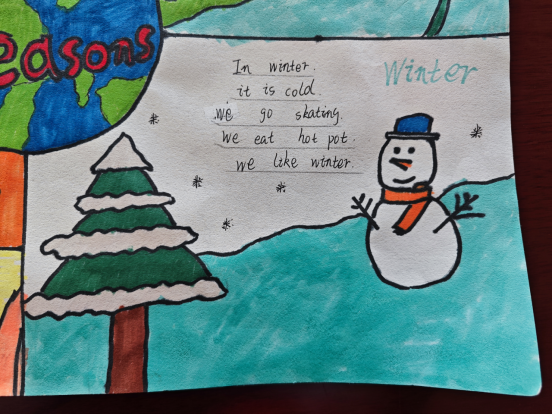 easons
Winter
In winter.
it is cold
we go skating.
we eat hot pot.
we like winter.